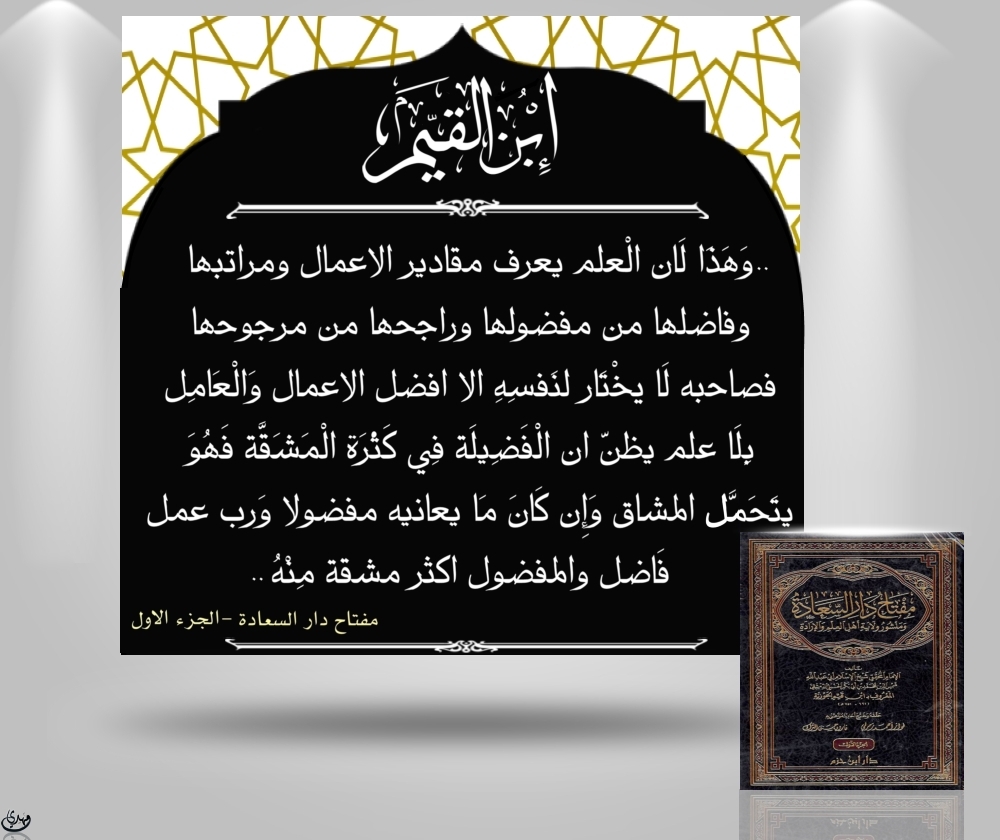 إبْنُ القيّم
..وَهَذَا لَان الْعلم يعرف مقادير الاعمال ومراتبها
وفاضلها من مفضولها وراجحها من مرجوحها
فصاحبه لَا يخْتَار لنَفسِهِ الا افضل الاعمال وَالْعَامِل
بِلَا علم يظنّ ان الْفَضِيلَة فِي كَثْرَة الْمَشَقَّة فَهُوَ
يتَحَمَّل المشاق وَإِن كَانَ مَا يعانيه مفضولا وَرب عمل
فَاضل والمفضول اكثر مشقة مِنْهُ ..
مفتاح دار السعادة -الجزء الاول
مفتاح دار السعادة
ومنشور ولاية أهل العلم والإرادة
تأليف
دار ابن حزم
مهدي